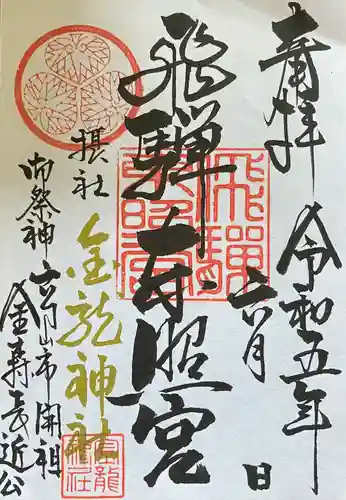 奉拝
令和五年
六月 日
飛騨東照宮
飛騨東照宮
摂社
金龍神社
金龍神社
御祭神
高山市開祖
金森長近公